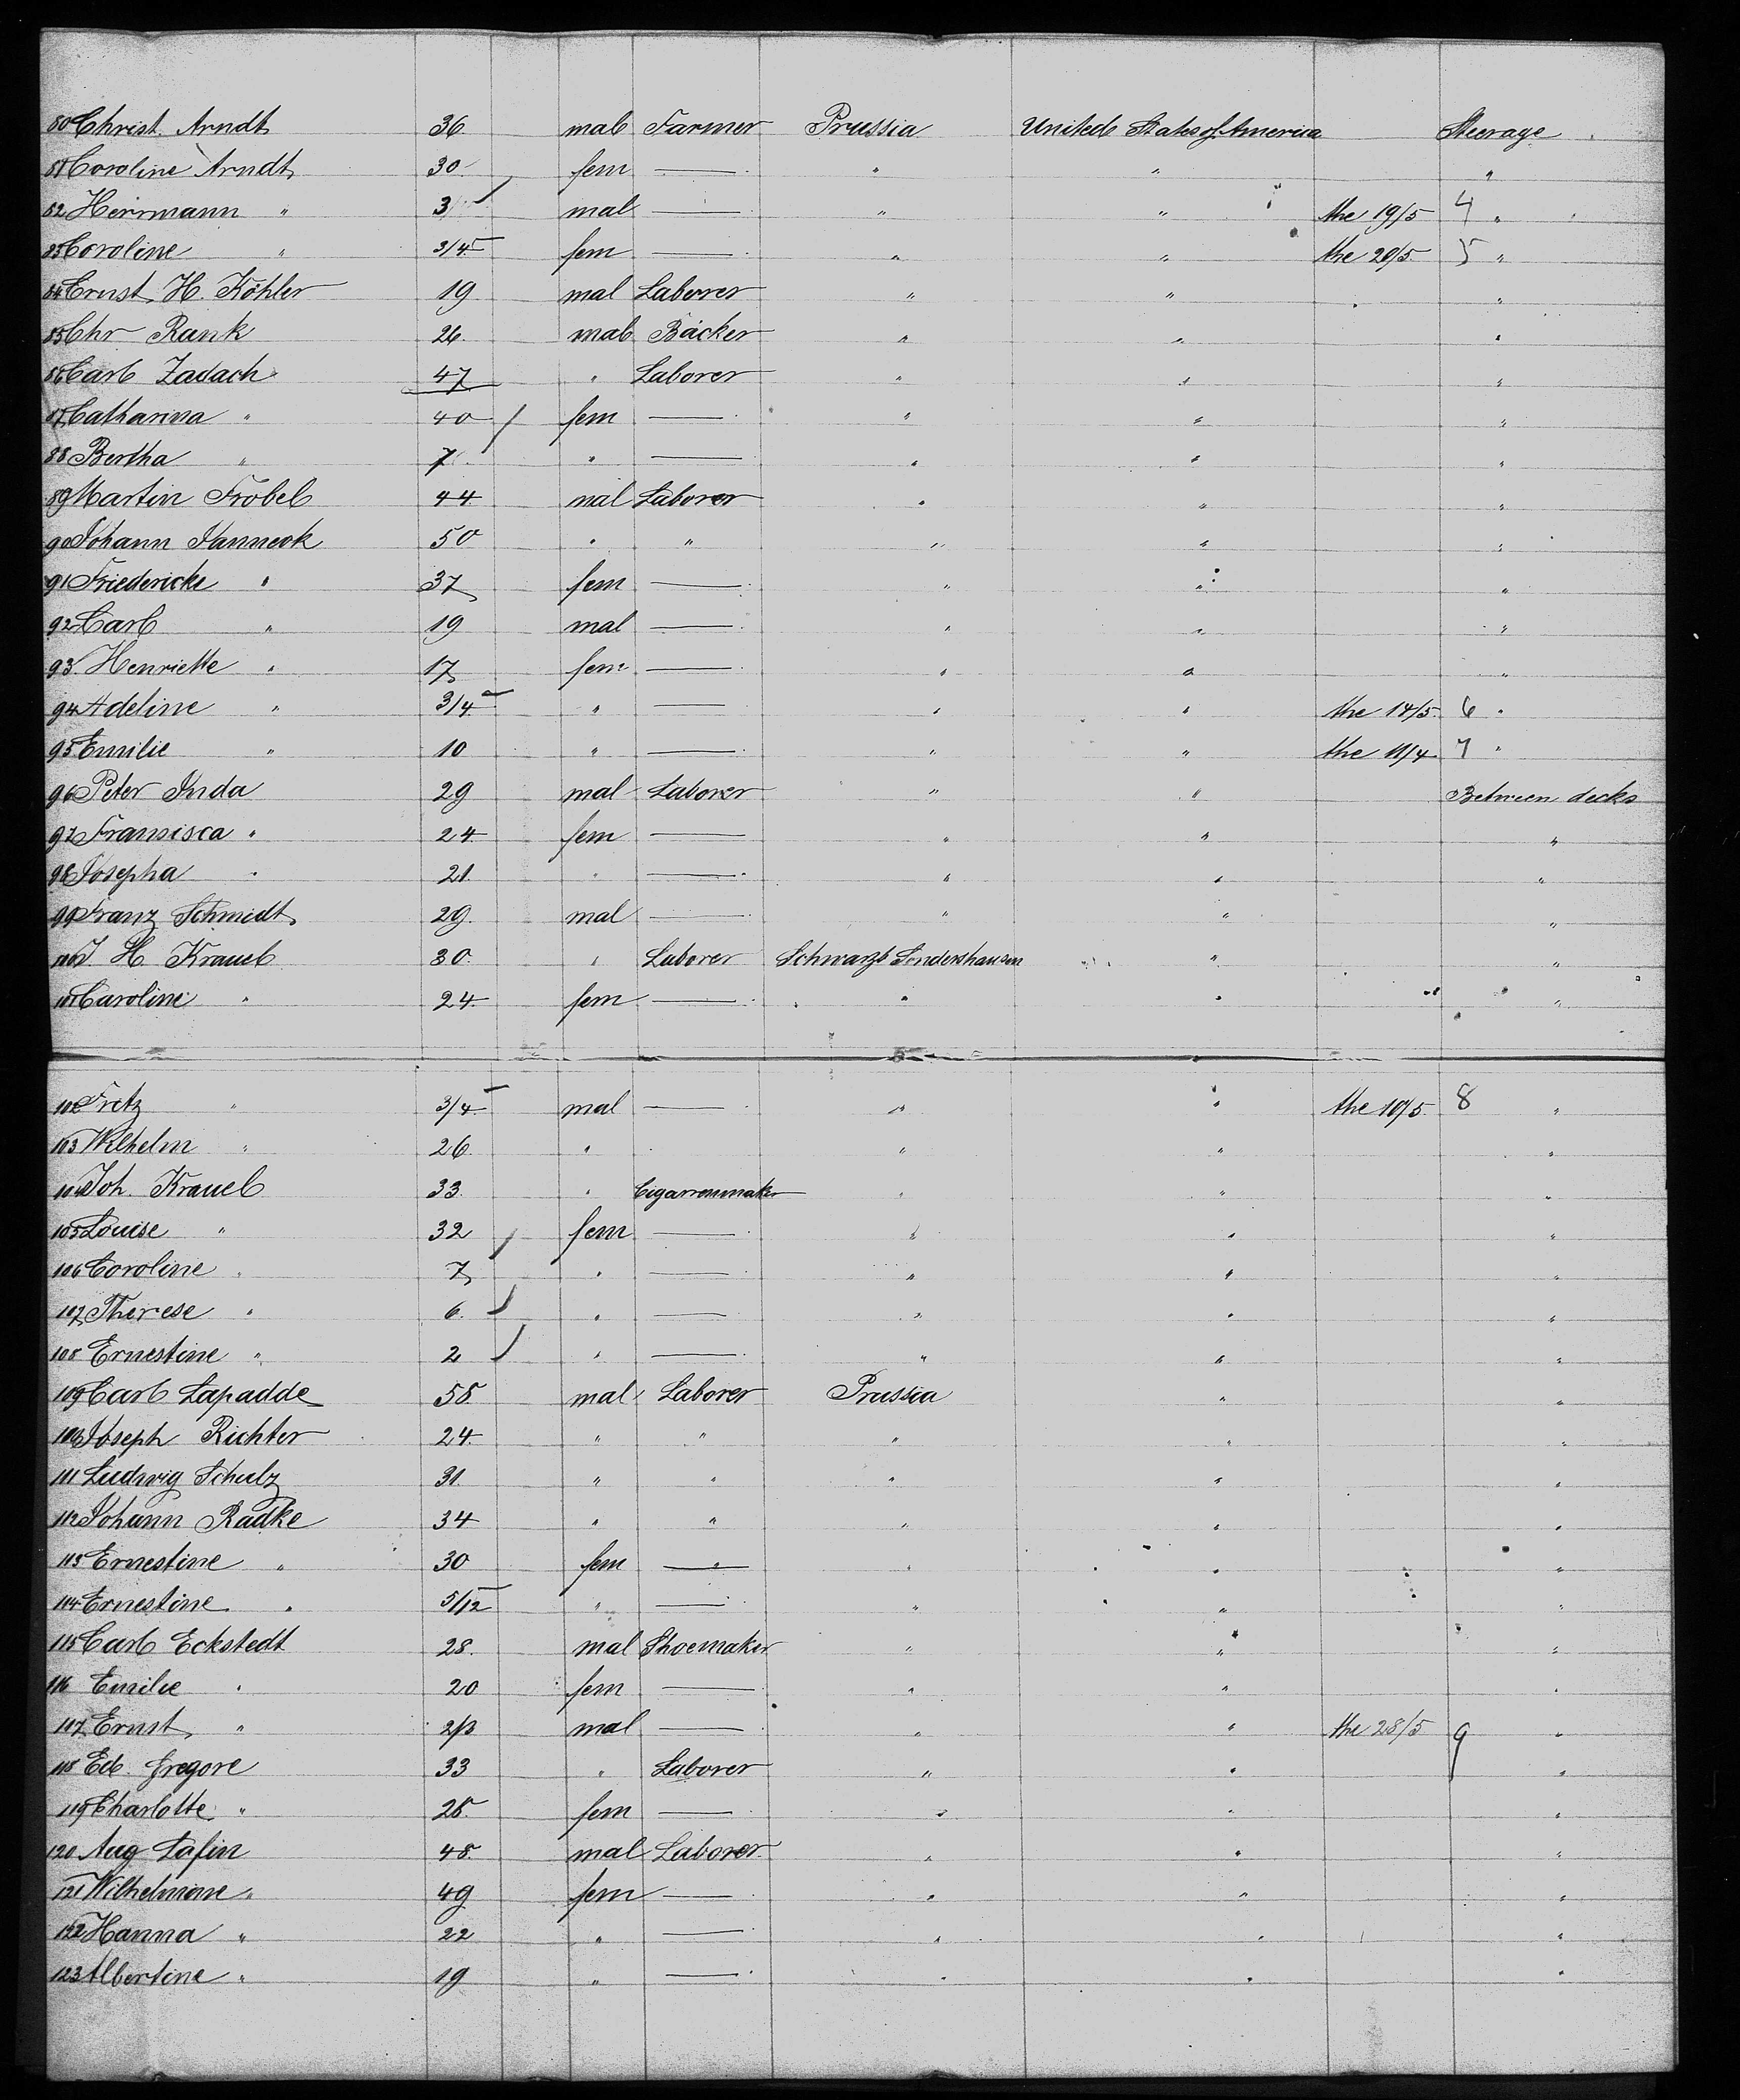 80 Christ. Arndt 36 mal Farmer Prussia United States of America Steerage
81 Caroline Arndt 30 fem — " " "
82 Herrmann " 3 mal — " " the 19/5 4 "
83 Caroline " 3/4 fem — " " the 20/5 5 "
84 Ernst H. Köhler 19 mal Laborer " " "
85 Chr Rank 26 mal Bäcker " " "
86 Carl Zadach 47 " Laborer " " "
87 Catharina " 40 fem — " " "
88 Bertha " 7 " — " " "
89 Martin Frobel 44 mal Laborer " " "
90 Johann Janneck 50 " " " " "
91 Friedericke " 37 fem — " " "
92 Carl " 19 mal — " " "
93 Henriette " 17 fem — " " "
94 Adeline " 3/4 " — " " the 14/5 6 "
95 Emilie " 10 " — " " the 11/4 7 "
96 Peter Inda 29 mal Laborer " " Between decks
97 Fransisca " 24 fem — " " "
98 Josepha " 21 " — " " "
99 Franz Schmidt 29 mal — " " "
100 J. H Krauel 30 " Laborer Schwarzb Sondershausen " "
101 Caroline " 24 fem — " " "
102 Fritz " 3/4 mal — " " the 10/5 8 "
103 Wilhelm " 26 " " " "
104 Joh. Krauel 33 " Cigarrenmaker " " "
105 Louise " 32 fem — " " "
106 Caroline " 7 " — " " "
107 Therese " 6 " — " " "
108 Ernestine " 2 " — " " "
109 Carl Lapadde 58 mal Laborer Prussia " "
110 Joseph Richter 24 " " " " "
111 Ludwig Schulz 31 " " " " "
112 Johann Radke 34 " " " " "
113 Ernestine " 30 fem — " " "
114 Ernestine " 5/12 " — " " "
115 Carl Eckstedt 28 mal Shoemaker " " "
116 Emilie " 20 fem — " " "
117 Ernst " 2/3 mal — " " the 28/5 9 "
118 Ed. Gregore 33 " Laborer " " "
119 Charlotte " 28 fem — " " "
120 Aug Lafin 48 mal Laborer " " "
121 Wilhelmine " 49 fem — " " "
122 Hanna " 22 " — " " "
123 Albertine " 19 " — " " "